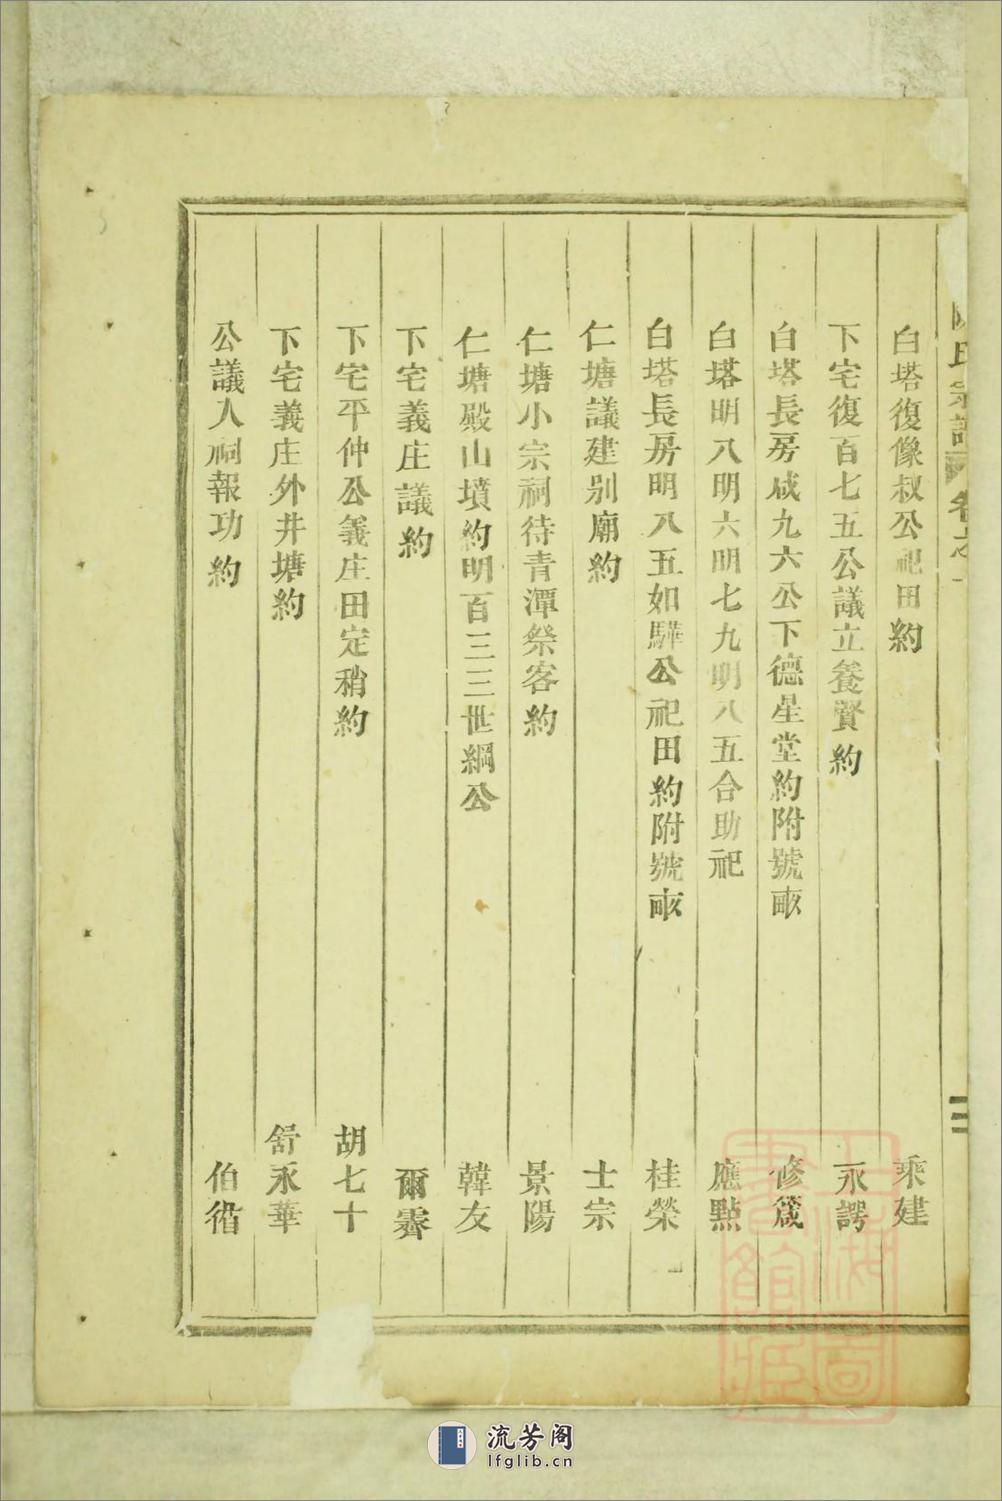 氏宗譜 卷之
三
白塔復像叔公祀田約 乘建
下宅復百七五公議立養賢約 永諤
白塔長房咸九六公下德星堂約附號畝 修箴
白塔明八明六明七九明八五合助祀 應點
白塔長房明八五如驊公祀田約附號畝 桂榮
仁塘議建别廟約 士宗
仁塘小宗祠待青潭祭客約 景陽
仁塘殿山墳約明百三三世綱公 韓友
下宅義庄議約 爾霽
下宅平仲公義庄田定稍約 胡七十
下宅義庄外井塘約 舒永華
公議人祠報功約 伯㣫
上海圖書館藏
流芳阁
lfglib.cn